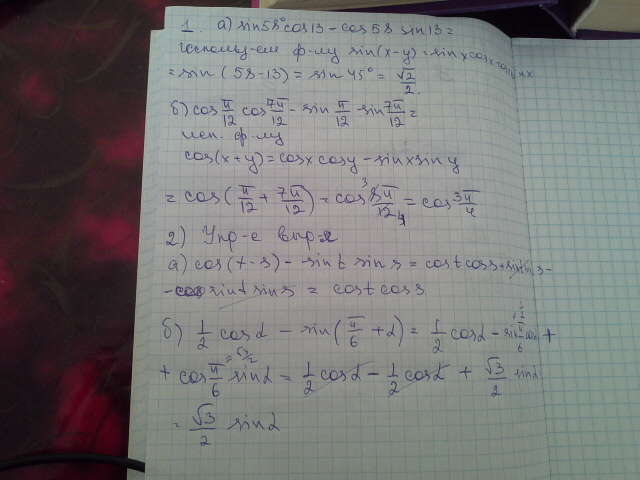 1. а) sin58°cos13 - cos58 sin13 =
используем ф-лу sin(x-y) = sinxcosx-cosy sinx
= sin (58-13) = sin 45° = √2/2.
б) cos π/12 cos 7π/12 - sin π/12 · sin 7π/12 =
исп. ф-лу
cos(x+y) = cosx cosy - sinx siny
= cos(π/12 + 7π/12) = cos 8π/12 = cos 3π/4
2) Упр-е выр-я
а) cos(t-s) - sin t sin s = cost cos s + sint sin s -
- sint sins = cost cos s
б) 1/2 cosα - sin(π/6 + α) = 1/2 cosα - sin π/6 cosα +
+ cos π/6 sinα = 1/2 cosα - 1/2 cosα + √3/2 sinα
= √3/2 sinα